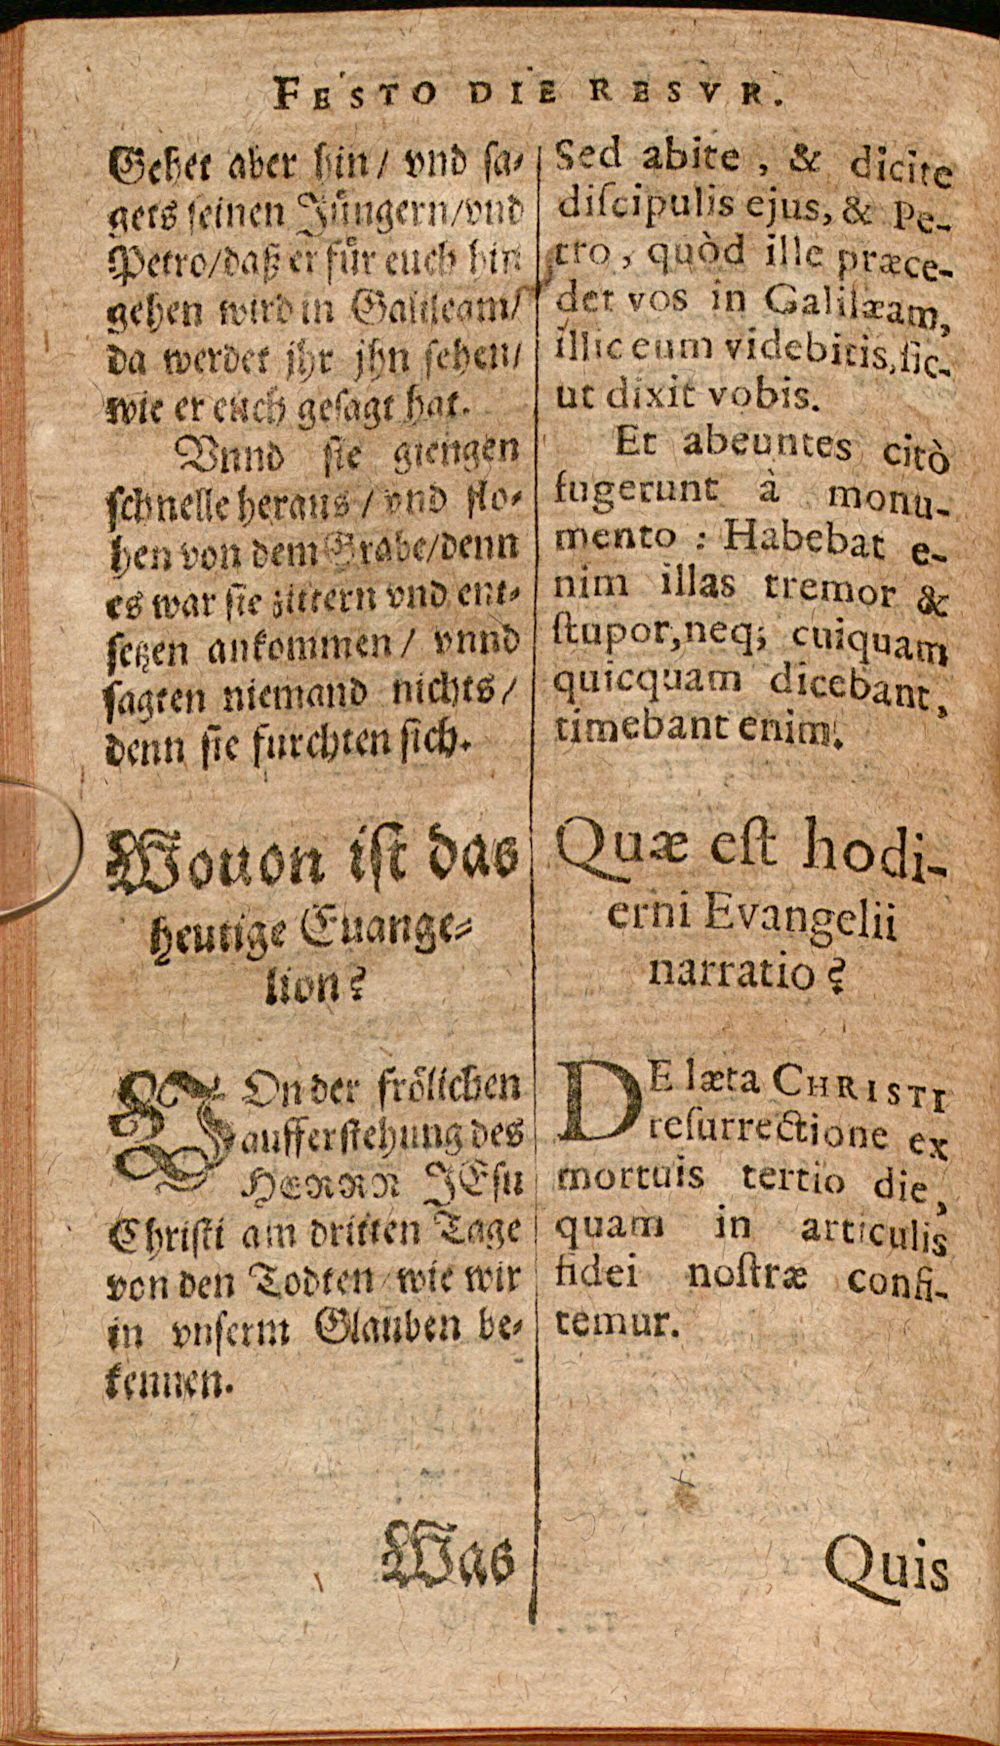 FESTO DIE RESVR.
Gehet aber hin/ vnd sa⸗
gets seinen Jüngern/vnd
Petro/daß er für euch hin
gehen wird in Galileam/
da werdet jhr jhn sehen/
wie er euch gesagt hat.
Vnnd sie giengen
schnelle heraus/vnd flo⸗
hen von dem Grabe/denn
es war sie zittern vnd ent⸗
setzen ankommen/ vnnd
sagten niemand nichts/
denn sie furchten sich.
Wouon ist das
heutige Euange⸗
lion?
VOn der frölichen
aufferstehung des
HERRN JEsu
Christi am dritten Tage
von den Todten wie wir
in vnserm Glauben be⸗
kennen.
Was
Sed abite, & dicite
diſcipulis ejus, & Pe-
tro, quòd ille præce-
det vos in Galilæam,
illic eum videbitis, ſic-
ut dixit vobis.
Et abeuntes citò
fugerunt à monu-
mento : Habebat e-
nim illas tremor &
ſtupor, neq; cuiquam
quicquam dicebant,
timebant enim.
Quæ eſt hodi-
erni Evangelii
narratio?
DE læta CHRISTI
reſurrectione ex
mortuis tertio die,
quam in articulis
fidei noſtræ confi-
temur.
Quis